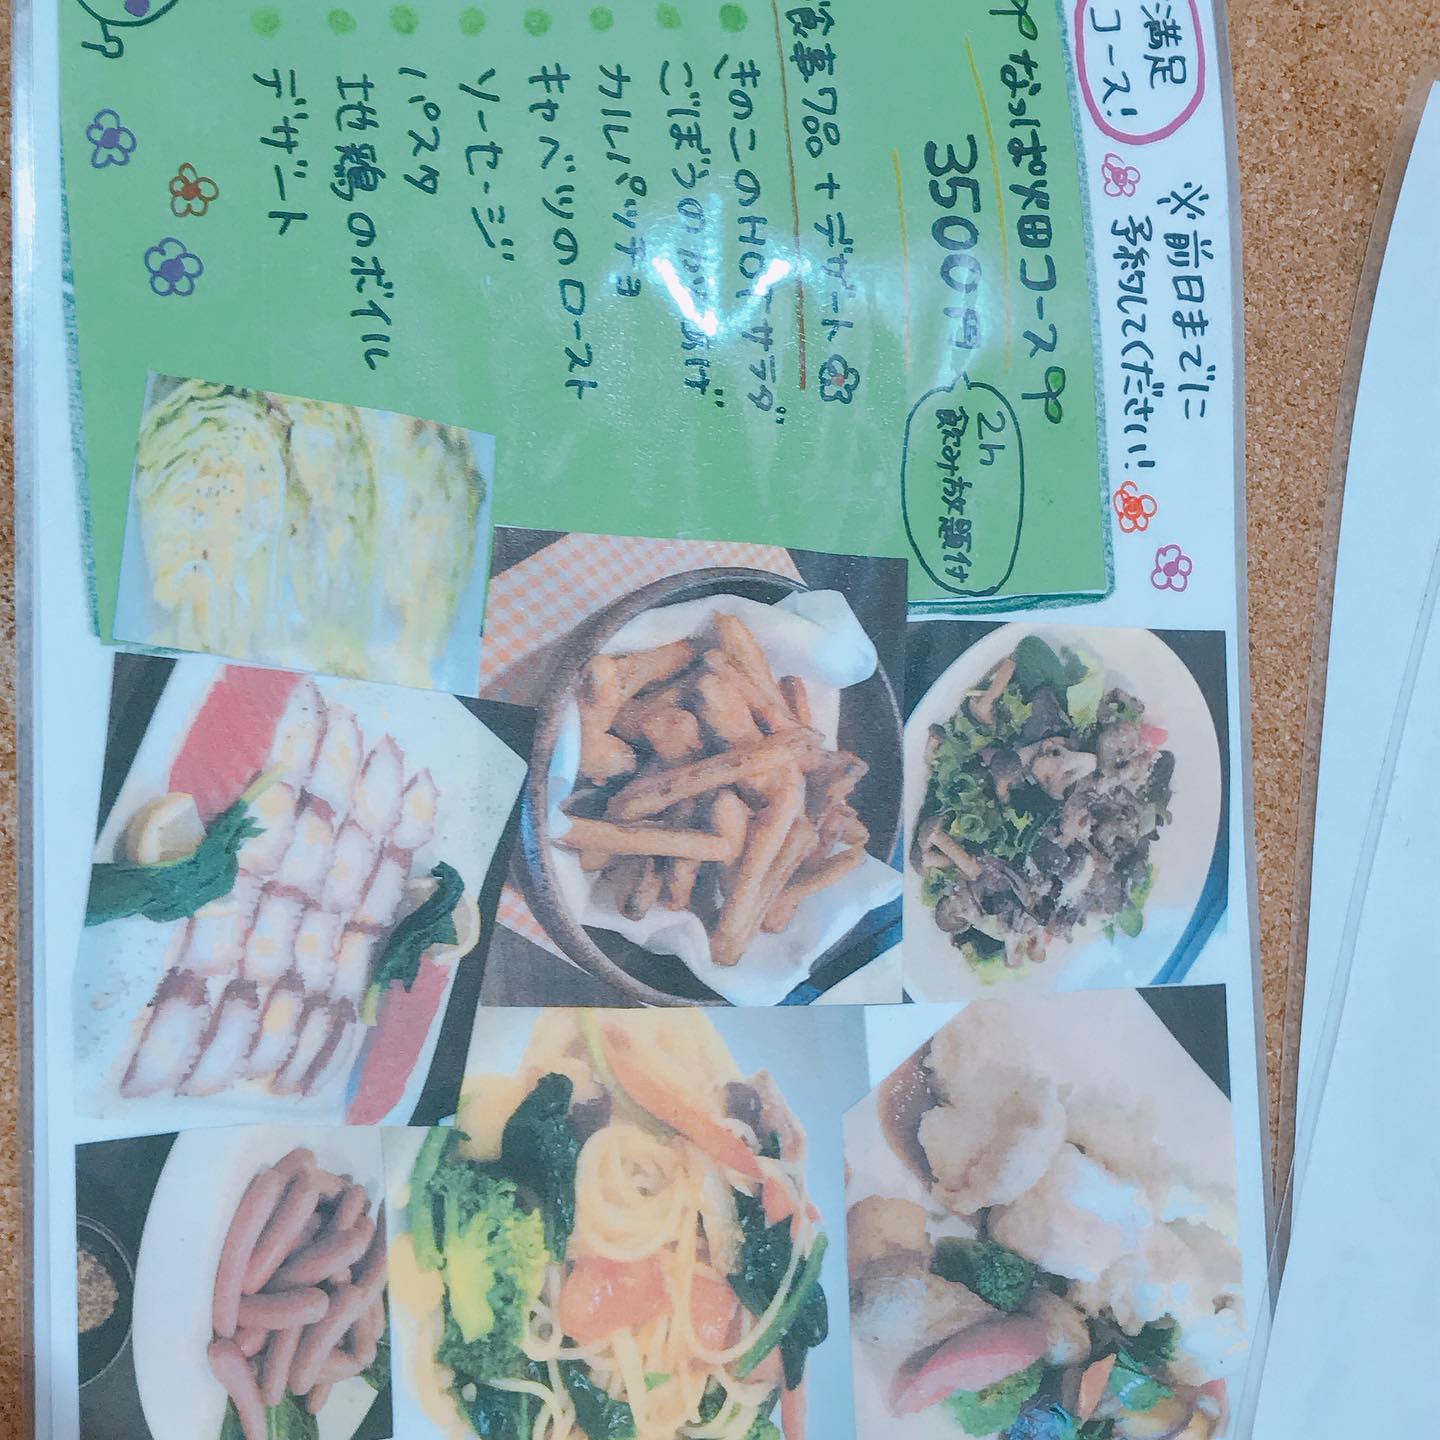 満足
コース!
※前日までに
予約してください!
なっぱ畑コース
3500円
2h
飲み放題付
食事7品+デザート
きのこのHOTサラダ
ごぼうのから揚げ
カルパッチョ
キャベツのロースト
ソーセージ
パスタ
地鶏のボイル
デザート